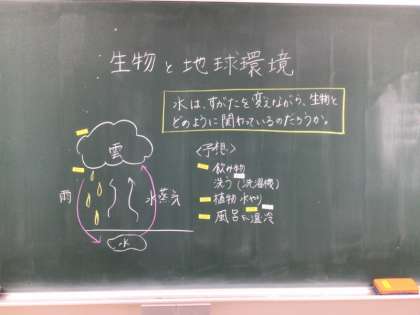 生物と地球環境
水は、すがたを変えながら、生物と
どのように関わっているのだろうか。
雲
雨
水蒸気
水
<予想>
飲み物
洗う(洗濯機)
植物 水やり
風呂に温冷